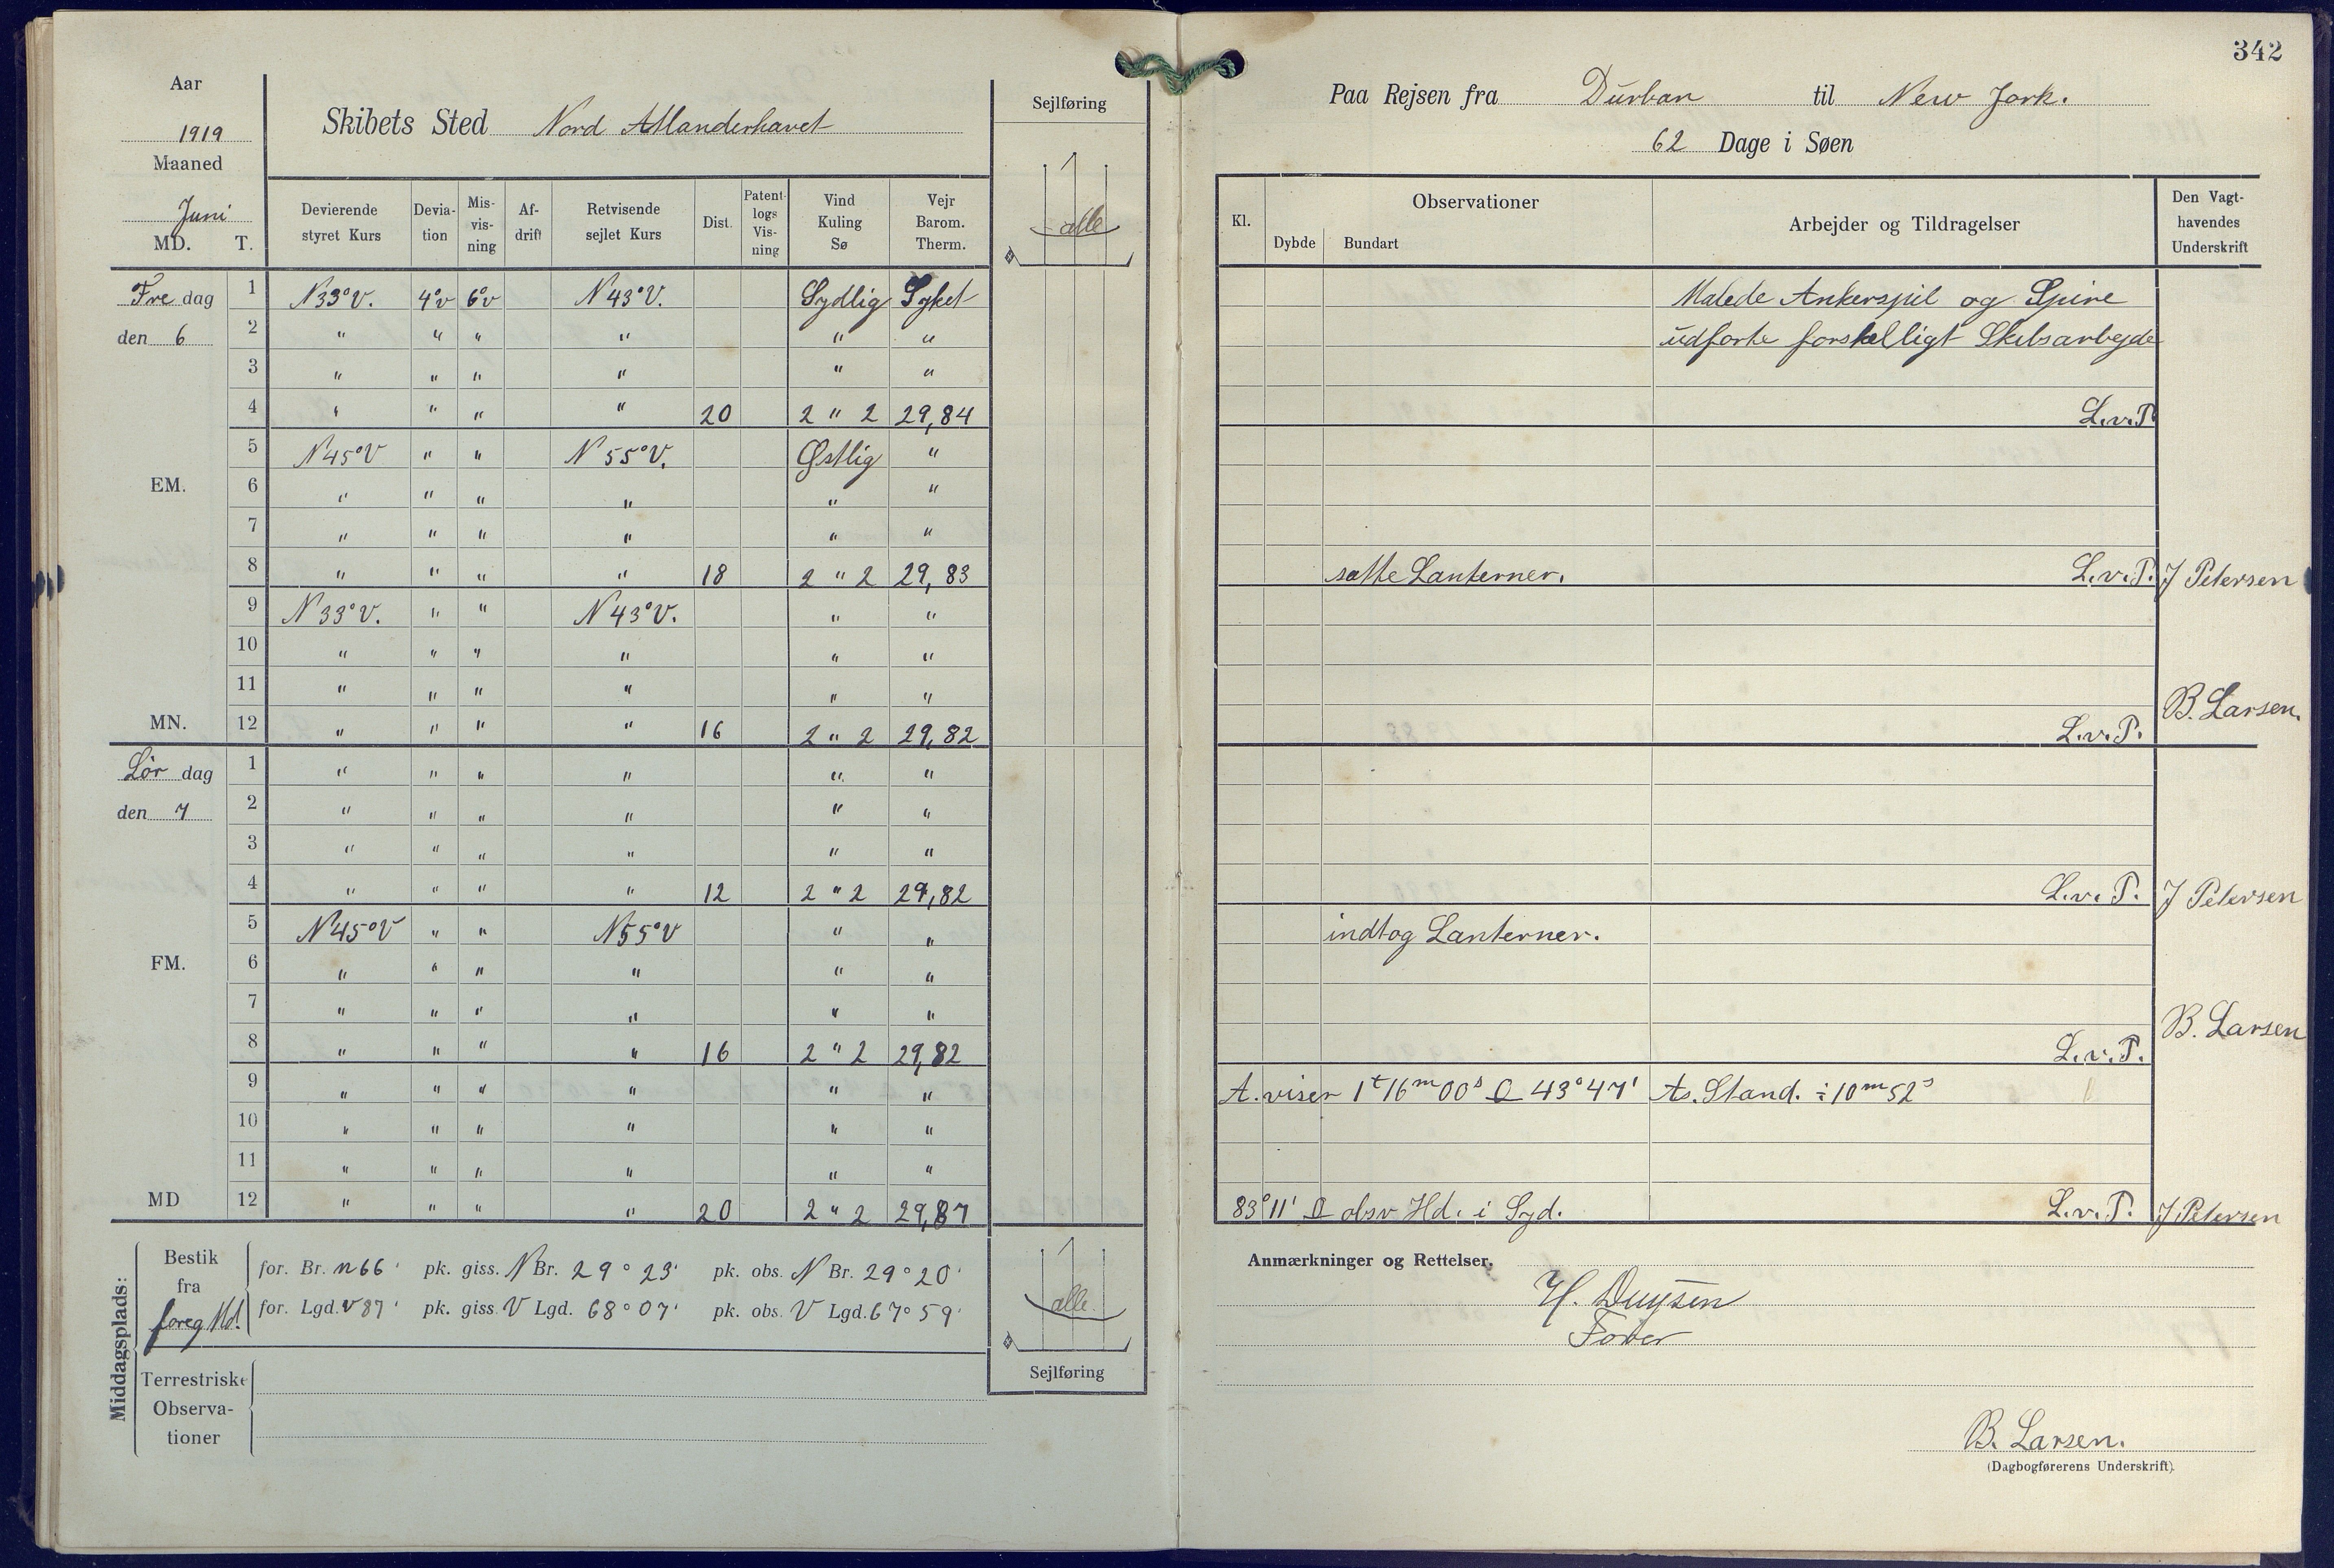 342
Aar
1919
Maaned
Juni
MD. T.
Skibets Sted Nord Atlanderhavet
Sejlføring
alle
Paa Rejsen fra Durban til New Jork.
62 Dage i Søen
Devierende styret Kurs | Devia-tion | Mis-vis-ning | Af-drift | Retvisende sejlet Kurs | Dist. | Patent-logs Vis-ning | Vind Kuling Sø | Vejr Barom. Therm.
Kl. | Observationer | Dybde | Bundart | Arbejder og Tildragelser | Den Vagt-havendes Underskrift
Fre dag 1 N33°V. 4°v 6°v N43°V. Sydlig Syket
Malede Ankerspil og Spire
den 6 2 " " " " " "
udforte forskelligt Skibsarbejde
3 " " " " " "
4 " " " " 20 2 " 2 29,84
L.v.P.
5 N45°V " " N55°V. Østlig "
EM. 6 " " " " " "
7 " " " " " "
8 " " " " 18 2 " 2 29,83
satte Lanterner. L.v.P. J Petersen
9 N33°V. " " N43°V. " "
10 " " " " " "
11 " " " " " "
MN. 12 " " " " 16 2 " 2 29,82
L.v.P. B. Larsen.
Lör dag 1 " " " " " "
den 7 2 " " " " " "
3 " " " " " "
4 " " " " 12 2 " 2 29,82
L.v.P. J Petersen
5 N45°V " " N55°V " "
indtog Lanterner.
FM. 6 " " " " " "
7 " " " " " "
8 " " " " 16 2 " 2 29,82
L.v.P. B. Larsen
9 " " " " " "
A. viser 1t16m00s O 43°47' As. Stand. ÷10m52s
10 " " " " " "
11 " " " " " "
MD 12 " " " " 20 2 " 2 29,87
83°11' O obsv Hd. i Syd. L.v.P. J Petersen
Middagsplads:
Bestik fra foreg Md.
for. Br. n66' pk. giss. N Br. 29°23' pk. obs. N Br. 29°20'
for. Lgd. v87' pk. giss. V Lgd. 68°07' pk. obs. V Lgd. 67°59'
Terrestriske Observa-tioner
alle.
Sejlføring
Anmærkninger og Rettelser.
H. Duysen
B. Larsen.
(Dagbogførerens Underskrift).